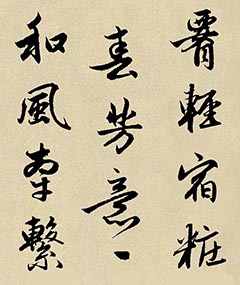 輕宿粧
春芳意
和風牽繫